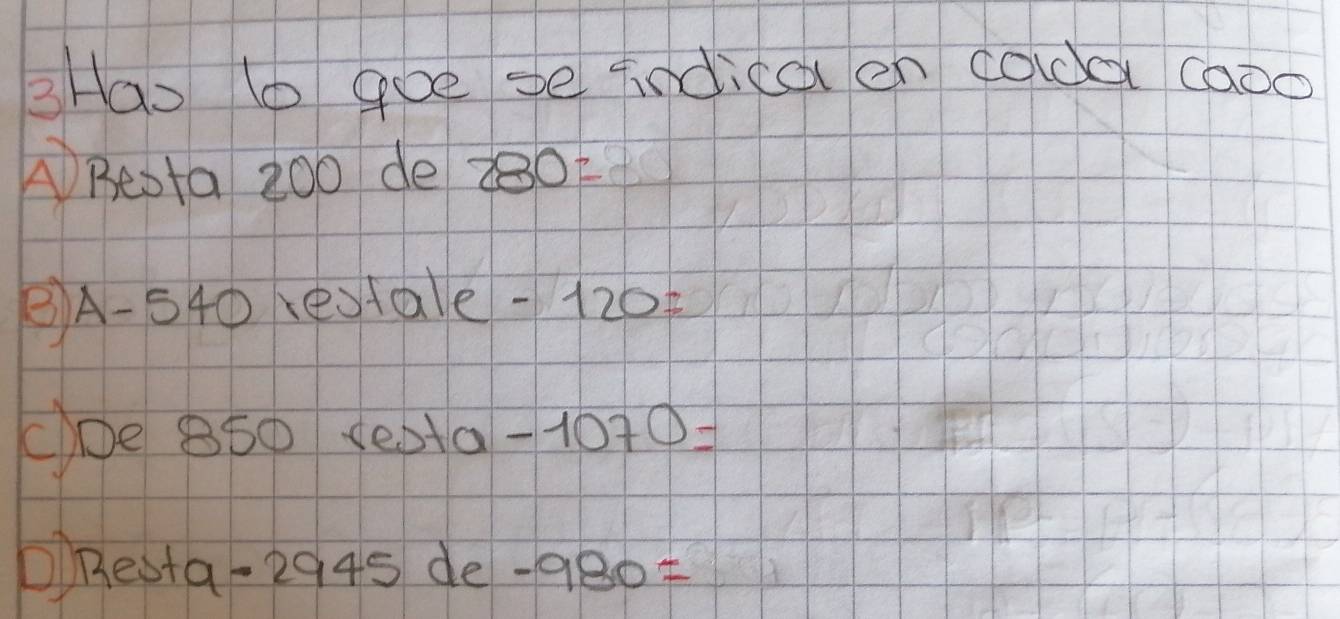 3 Has lo que se indica en cada caso
A) Resta 200 de 280=
B) A -540 restale -120=
C) De 850 resta -1070=
D) Resta -2945 de -980=